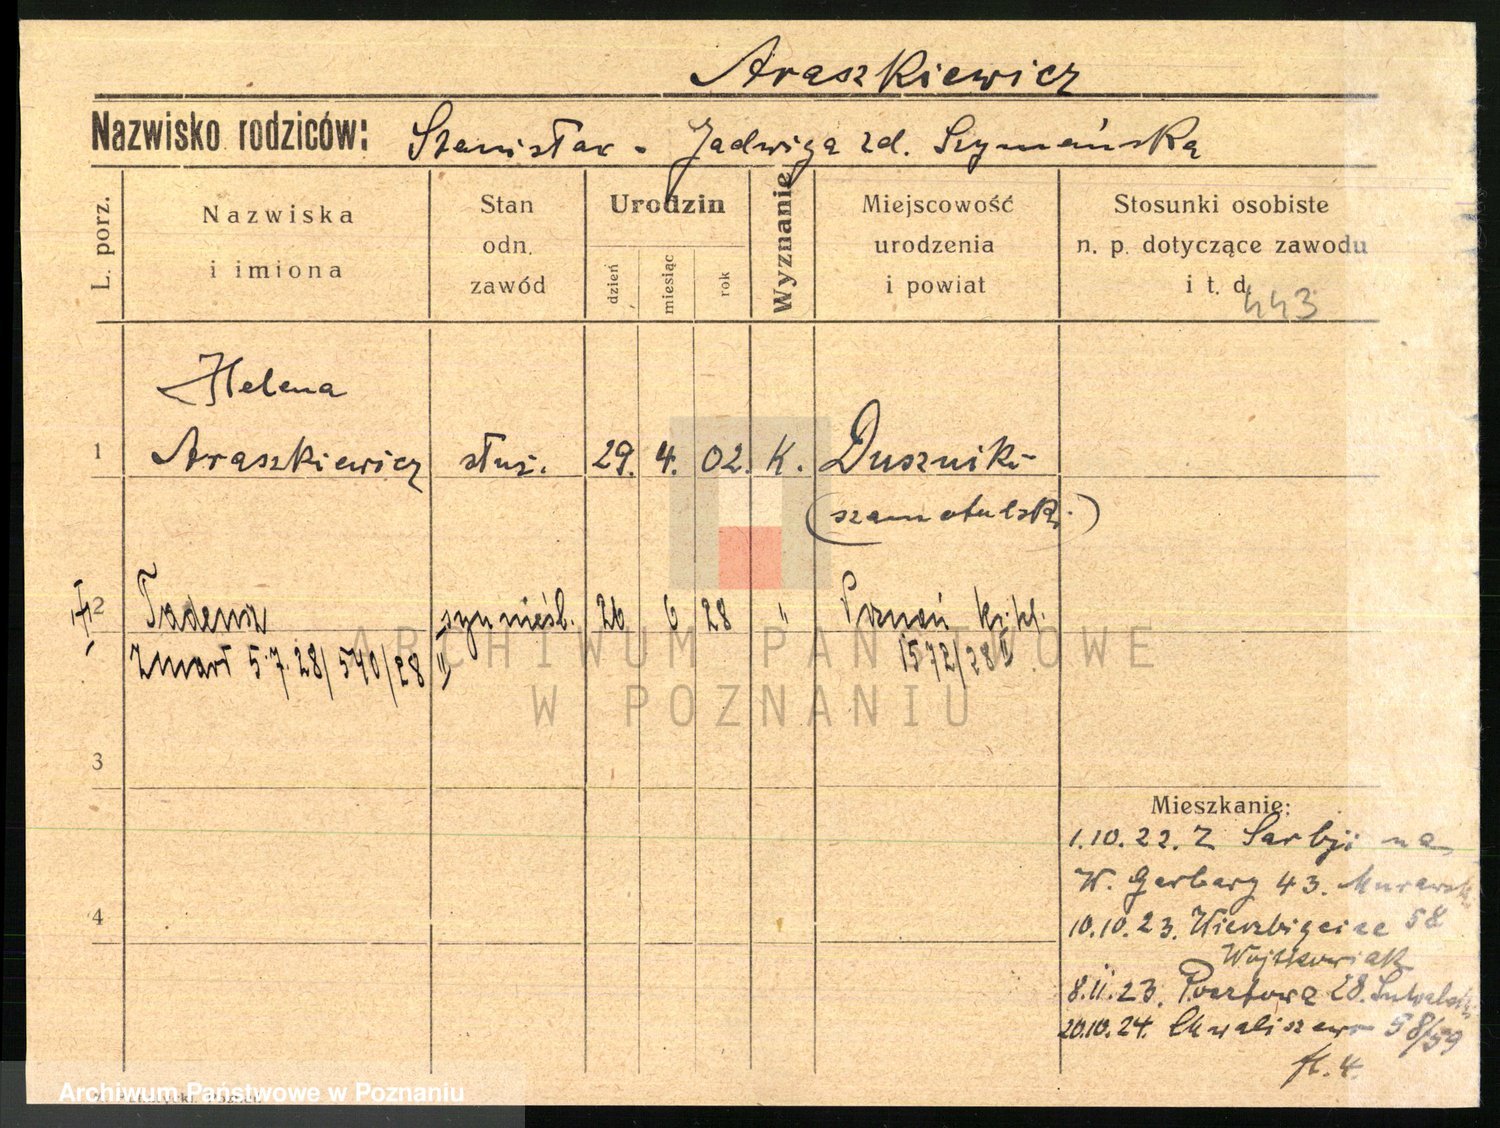 Araszkiewicz
Nazwisko rodziców: Stanisław - Jadwiga zd. Szymańska
L. porz.
Nazwiska
i imiona
Stan
odn.
zawód
Urodzin
dzień
miesiąc
rok
Wyznanie
Miejscowość
urodzenia
i powiat
Stosunki osobiste
n. p. dotyczące zawodu
i t. d.
443
Helena
1 Araszkiewicz służ. 29. 4. 02. K. Duszniki
(szamotulski)
2 Tadeusz syn nieśl. 26 6 28 " Poznań
Zmarł 5.7.28/540/28 II 1572/28 II
3
4
Mieszkanie:
1.10.22. Z Sarbji na
W. Garbary 43.
10.10.23. Wierzbięcice 58
Wojtkowiak
8.11.23. Pocztowa 28.
20.10.24. Chwaliszewo 58/59
ARCHIWUM PAŃSTWOWE
W POZNANIU
Archiwum Państwowe w Poznaniu